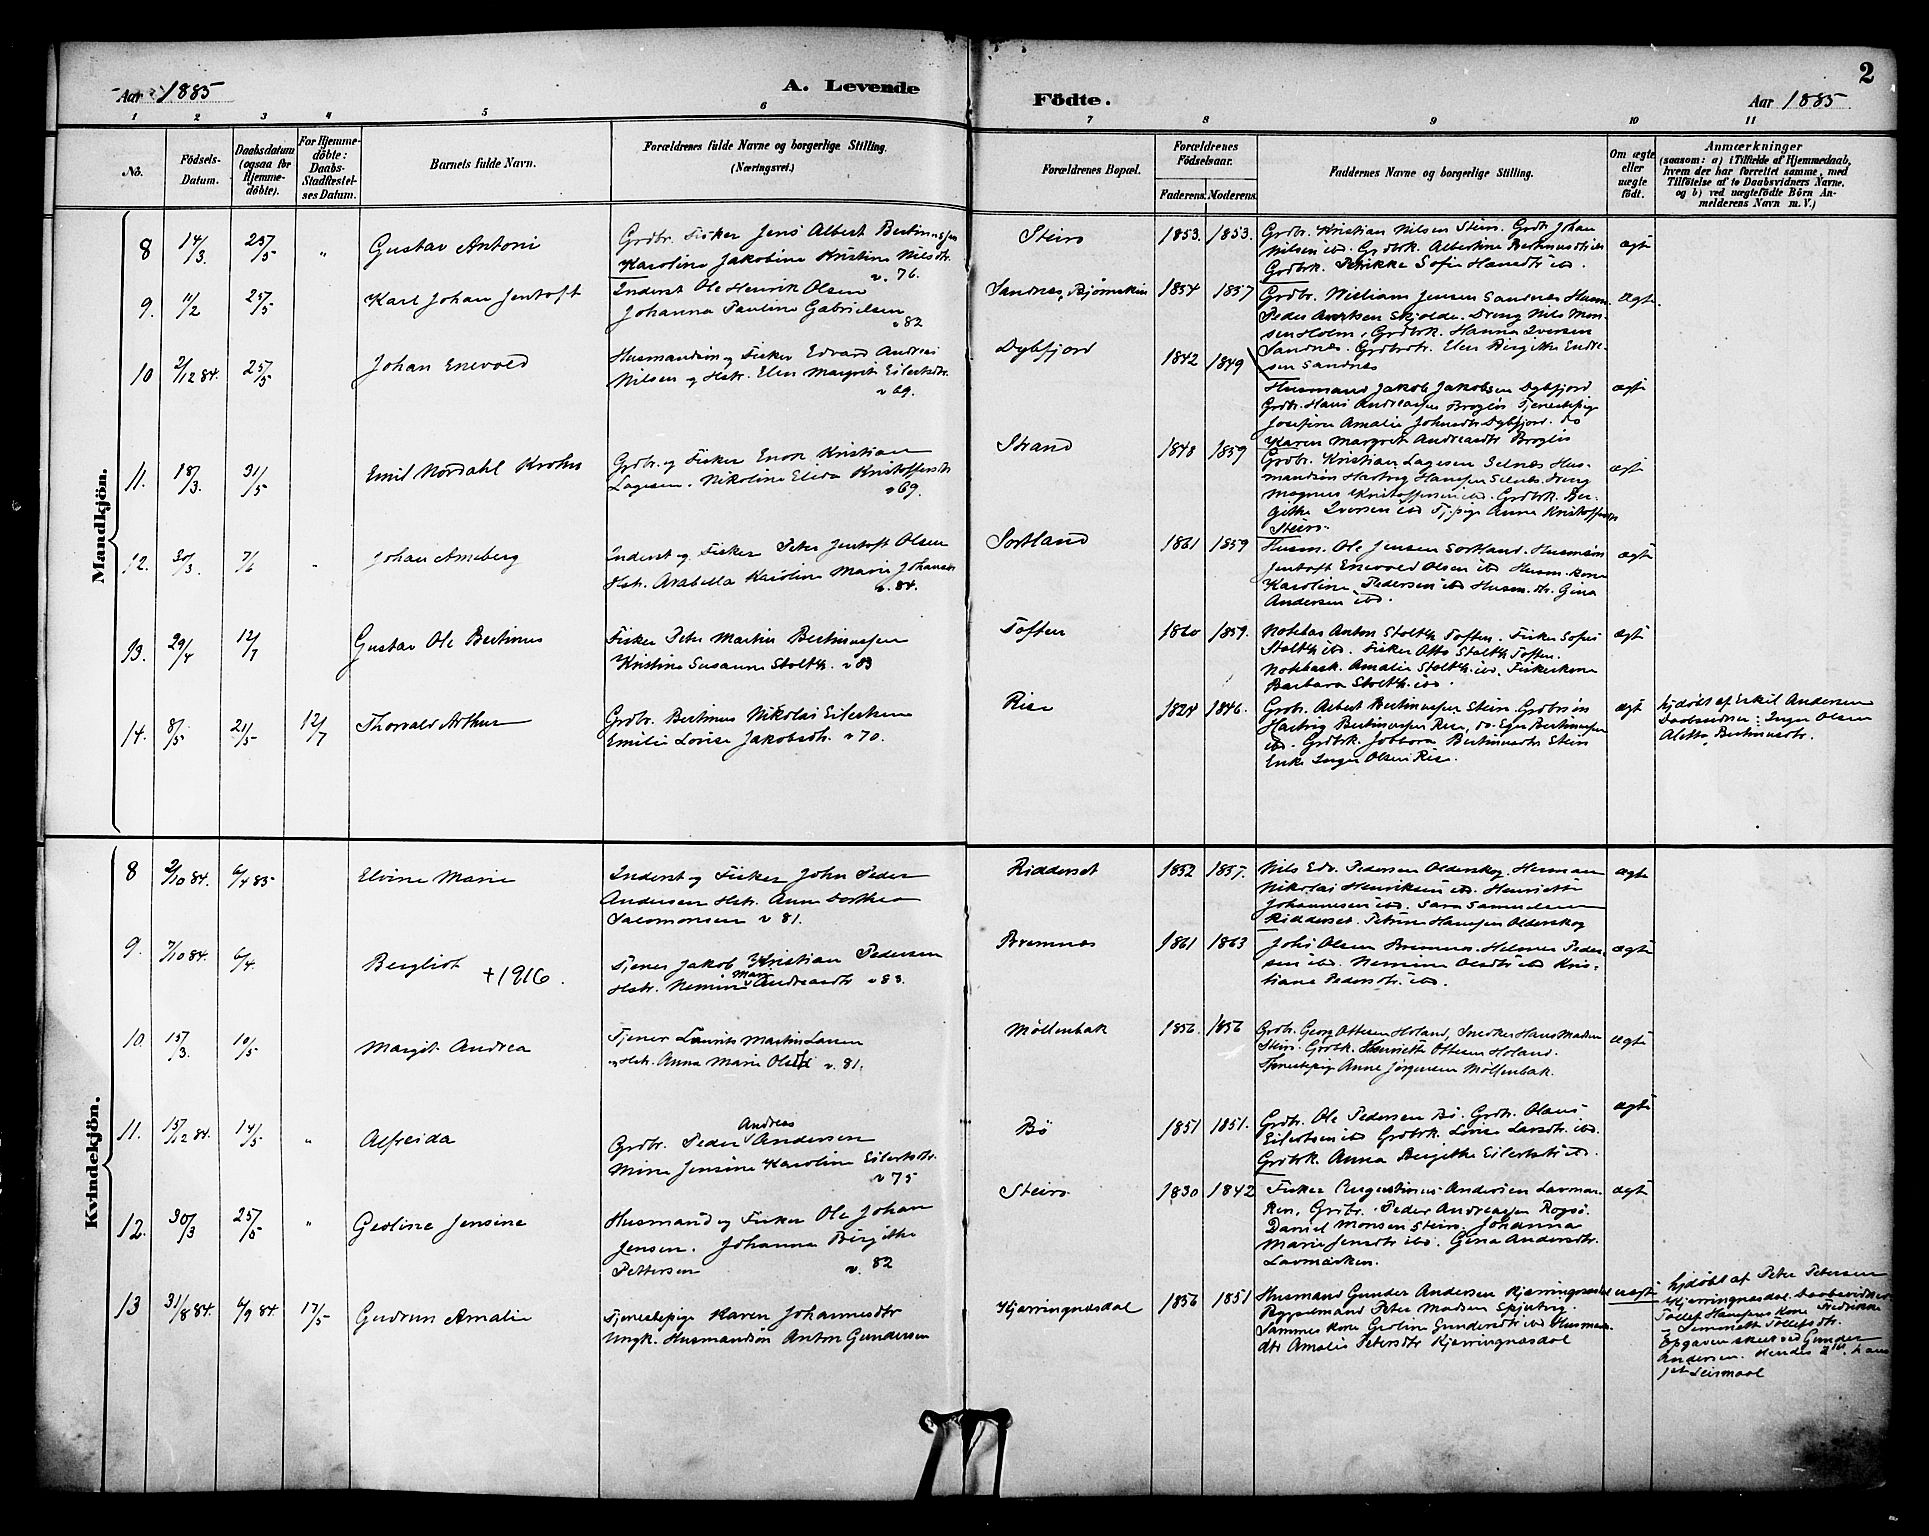 Aar 1885
A. Levende
Födte.
Aar 1885
2
1 2 3 4 5 6 7 8 9 10 11
No.
Födsels-Datum.
Daabsdatum (ogsaa for Hjemmedöbte).
For Hjemmedöbte: Daabs-Stadfæstelses Datum.
Barnets fulde Navn.
Forældrenes fulde Navne og borgerlige Stilling. (Næringsvei.)
Forældrenes Bopæl.
Forældrenes Födselsaar.
Faderens. Moderens.
Faddernes Navne og borgerlige Stilling.
Om ægte eller uægte födt.
Anmærkninger
(saasom: a) i Tilfælde af Hjemmedaab, hvem der har forrettet samme, med Tilföielse af to Daabsvidners Navne, og b) ved uægtefödte Börn Anmelderens Navn m. V.)
Mandkjön.
8 14/3 25/5 " Gustav Antoni
Grdbr. Fisker Jens Albert Bertinussen
Karoline Jakobine Kristine Nilsdtr.
v 76.
Steiro 1853. 1853.
Grdbr. Kristian Nilsen Steiro. Grdb Johan
Nilsen ibd. Grdbrk. Albertine Bertinusdtr ibd
Grdbrk. Petrikke Sofie Hansdtr ibd.
ægte
9. 11/2 25/5 Karl Johan Jentoft
Inderst Ole Henrik Olsen
Johanna Pauline Gabrielsen
v 82
Sandnes, Bjørnskin 1854 1857
Grdbr. William Jensen Sandnes Husm.
Peder Skjolde. Dreng Nils Mon-
sen Holm, Grdbrk. Hanna Iversen
Sandnes. Grdbrdtr. Elen Birgitte Endre-
sen Sandnes
ægte
10 2/12 84. 25/5 Johan Enevold
Husmandsøn og Fisker Edvard Andreas
Nilsen og Hstr. Elen Margrete Eilertsdtr.
v 69.
Dybfjord 1842 1849
Husmand Jakob Jakobsen Dybfjord
Grdbr. Hans Andreassen Brogløs Tjenestepige
Josefine Amalie Johnsdtr Dybfjord. do
Karen Margrete Andreasdtr Brogløs
ægte
11. 18/3. 31/5 Emil Nordahl Krohn
Grdbr. og Fisker Enok Kristian
Lagesen. Nikoline Elida Kristoffersdtr
v 69.
Strand 1848 1859
Grdbr. Kristian Lagesen Selnæs Hus-
mandsøn Hartvig Hansen Selnæs. Dreng
Magnus Kristoffersen ibd. Grdbrk. Ber-
githe Iversen ibd Tj.pige Anne Kristoffersen
Steiro.
ægte
12. 30/3. 7/6 " Johan Arneberg
Inderst og Fisker Peter Jentoft Olsen
Hstr. Arabella Karoline Marie Johansen
v. 84.
Sortland 1861 1859
Husm. Ole Jensen Sortland. Husmsøn
Jentoft Enevold Olsen ibd Husm.kone
Karoline Pedersen ibd Husm.dtr. Gina
Andersen ibd.
ægte
13. 29/4 12/7 Gustav Ole Bertinus
Fisker Peter Martin Bertinussen
Kristine Susanne Stolth. v 83
Toften 1860 1859.
Notebas Anton Stolth Toften. Fisker Sofus
Stolth ibd. Fisker Otto Stolth Toften.
Notebask. Amalie Stolth ibd. Fiskerkone
Barbara Stolth ibd.
ægte
14. 8/5 21/5 12/7 Thorvald Arthur
Grdbr. Bertinus Nikolai Eilertsen
Emilie Lovise Jakobsdtr. v 70.
Rise 1824 1846.
Grdb. Albert Bertinussen Steiro. Grdbrsøn
Hartvig Bertinussen Rise, do. Eger Bertinussen
ibd. Grdbrk. Bertinusdtr Steiro
Enke Inger Olsen Rise.
ægte
hjdøbt af Eskil Andersen
Daabsvidner: Inger Olsen
Aletta Bertinusdtr.
Kvindekjön.
8 2/10 84. 6/4 85 Elvine Marie
Inderst og Fisker John Peder
Andersen Hstr. Anne Dorthea
Salomonsen v 81.
Ridderset 1852 1857.
Nils Edv. Pedersen Olderskog. Herman
Nikolai Henriksen ibd. Henriette
Johannesen ibd. Sara Samuelsen
Ridderset. Petrine Hansen Olderskog
ægte
9. 7/10 84. 6/4. Bergliot +1916.
Tjener Jakob Kristian Pedersen
Hstr. Nemine Mari Andreasdtr v 83.
Bremnes 1861 1863
Johs Olsen Bremnes. Helmer Peder-
sen ibd. Nemine Olsdtr ibd Kris-
tiane Pedersdtr. ibd.
ægte
10. 15/3. 10/5 Margit Andrea
Tjener Laurits Martin Larsen
og Hstr. Anna Marie Olsdtr v. 81.
Møllenbak 1856. 1856
Grdbr. Georg Ottesen Holand, Snedker Hans Madsen
Steiro. Grdbrk. Henriette Ottesen Holand.
Tjenestepige Anne Jørgensen Møllenbak.
ægte
11. 15/12 84. 14/5 " Alfreida
Grdbr. Peder Andreas Andersen
Mine Jensine Karoline Eilertsdtr.
v 75
Bø 1851 1851.
Grdbr. Ole Pedersen Bø. Grdbr. Olaus
Eilertsen ibd Grdbrk. Lovise Larsdtr ibd.
Grdbrk. Anna Bergitte Eilertsdtr ibd.
ægte
12. 30/3 25/5 " Geoline Jensine
Husmand og Fisker Ole Johan
Jensen. Johanna Birgithe
Pettersen v. 82
Steiro 1830 1842
Fisker Augustinus Andersen Lavmar-
ken, Grdbr. Peder Andreassen Rogsø.
Daniel Monsen Steiro. Johanna
Marie Jensdtr ibd. Gina Andersdtr.
Lavmarken.
ægte
13 31/8 84. 6/9 84 17/5 Gudrun Amalie
Tjenestepige Karen Johannesdtr
Ungk. Husmandsøn Anton Gundersen
Kjerringnesdal 1856 1851
Husmand Gunder Andersen Kjerringnesdal
Peter Madsen
Sammes Kone Geoline Gundersdtr ibd Husman.
dtr Amalie Petersdtr Kjerringnesdal
uægte
hjdøbt af Peter Petersen
Kjerringnesdal. Daabsvidner
Tollef Hansens Kone Fredrikke
Tollefsdtr.
Opgaven skeet ved Gunder
Andersen. Hendes 2det, hans
1ste Leiermaal